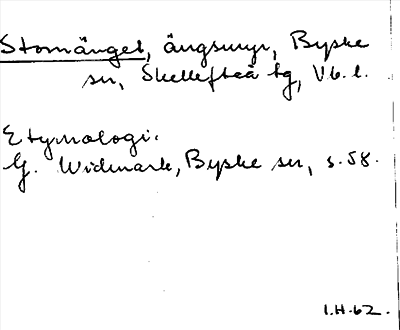 Stomänget, ängsmyr, Byske
sn, Skellefteå tg, Vb. l.
Etymologi.
G. Widmark, Byske sn, s. 58.
I.H.62.